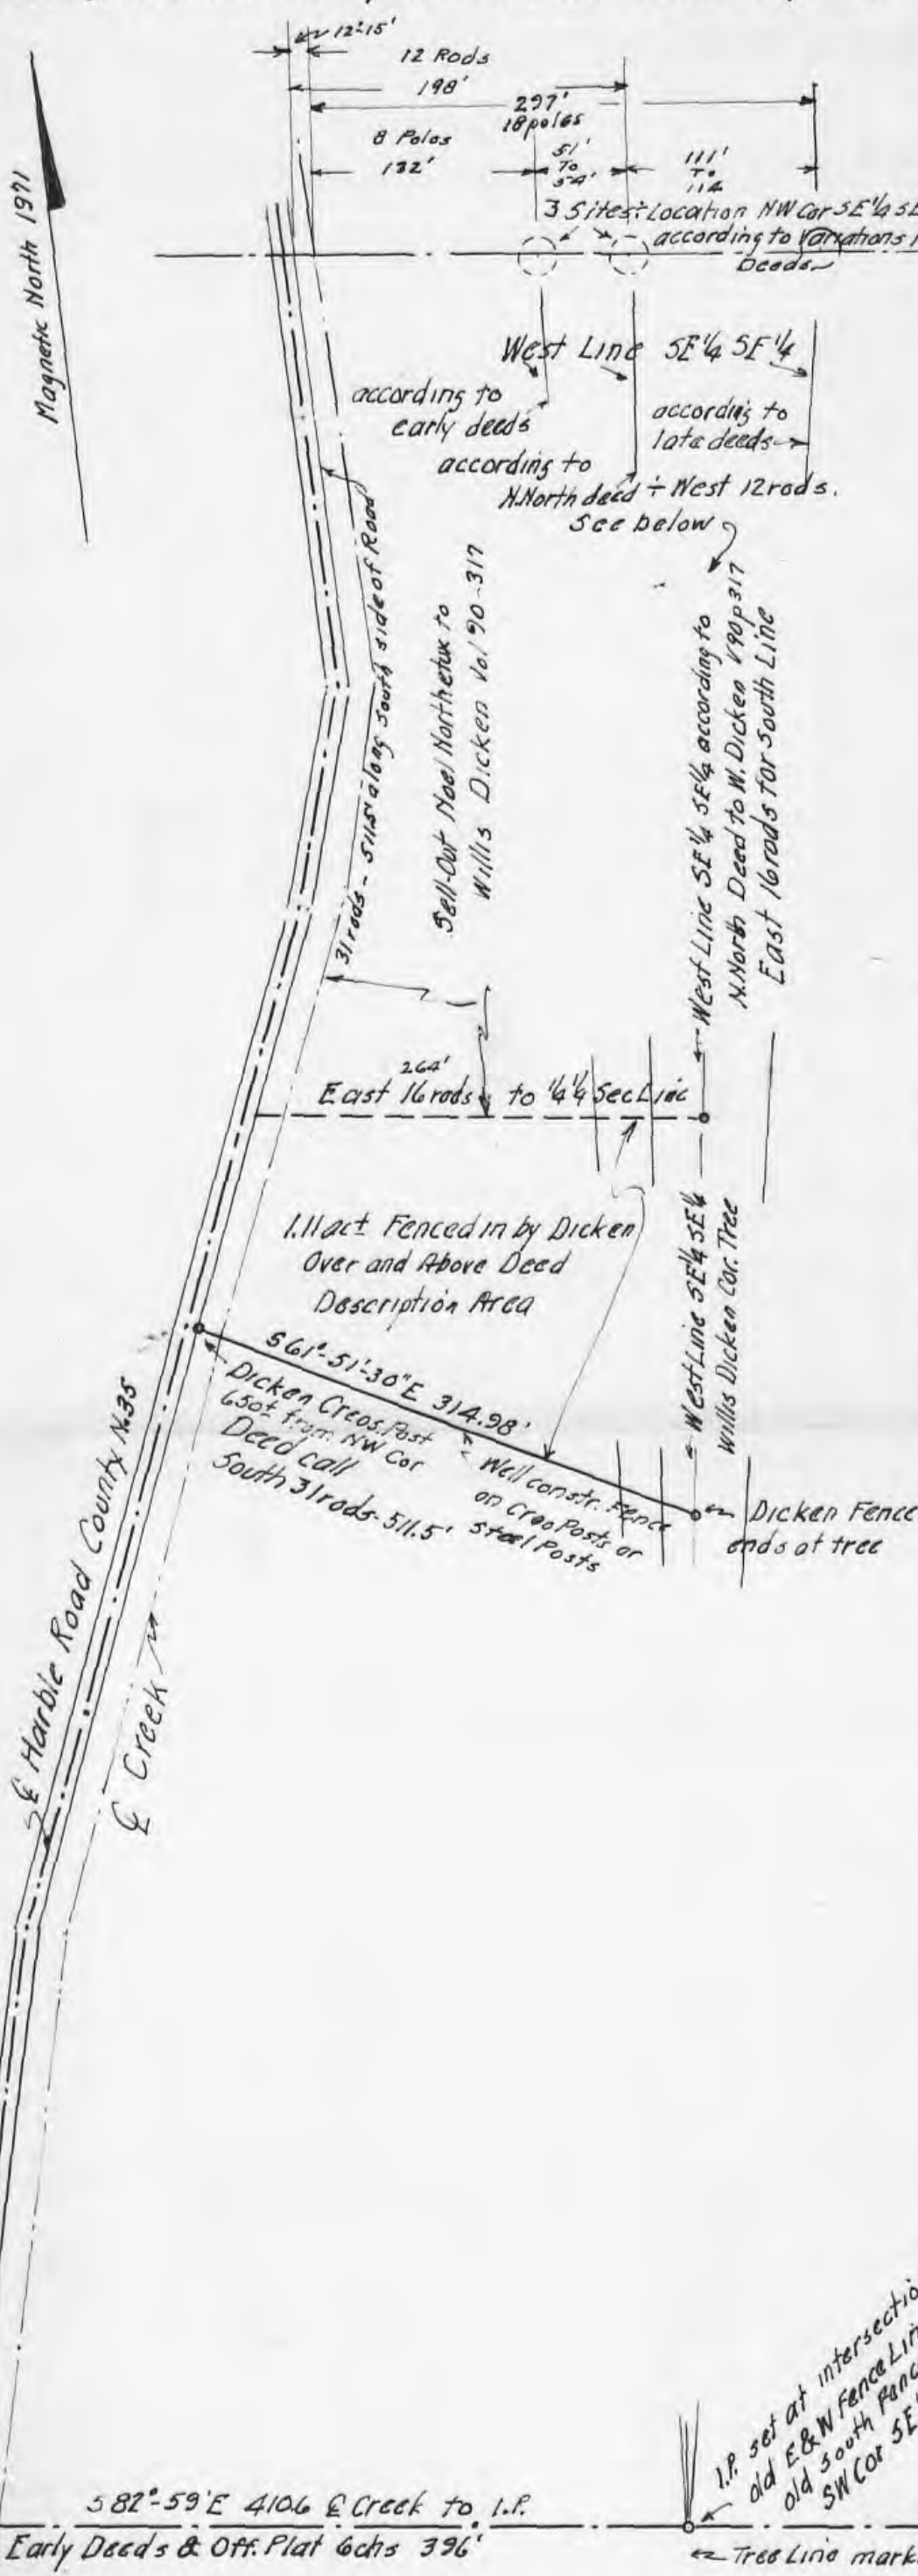 12'-15'
12 Rods
198'
297'
18 poles
8 Poles
132'
51'
To
54'
111'
To
114
Magnetic North 1971
3 Sites ÷ Location NW Cor SE 1/4 SE
according to Variations
Deeds
West Line SE 1/4 SE 1/4
according to
early deeds
according to
late deeds
according to
N.North deed ÷ West 12 rods.
See below
31 rods - 511.5' along South side of Road
Sell-Out Noel Northetux to
Willis Dicken Vol 90-317
West Line SE 1/4 SE 1/4 according to
N.North Deed to W. Dicken V90 p317
East 16 rods for South Line
264'
East 16 rods to 1/4 1/4 Sec Line
1.11 ac± Fenced in by Dicken
Over and Above Deed
Description Area
West Line SE 1/4 SE 1/4
Willis Dicken Cor. Tree
S61°-51'-30"E 314.98'
Dicken Creos. Post
650± from NW Cor
Deed call
South 31 rods - 511.5'
Well constr. Fence
on Creo Posts or
Steel Posts
Dicken Fence
ends at tree
℄ Harble Road County No35
℄ Creek
I.P. set at intersection
old E & W Fence Line
old South Fence
SW Cor SE
S82°-59'E 410.6 ℄ Creek to I.P.
Early Deeds & Off. Plat 6chs 396'
Tree Line mark